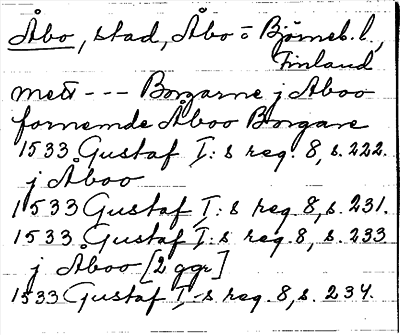 Åbo, stad, Åbo o Björneb. l.,
Finland
mett --- Borgarne j Aboo
fornemde Åboo Borgare
1533 Gustaf I:s reg. 8, s. 222.
j Åboo
1533 Gustaf I:s reg. 8, s. 231.
1533 Gustaf I:s reg. 8, s. 233
j Åboo [2 ggr]
1533 Gustaf I:s reg. 8, s. 234.